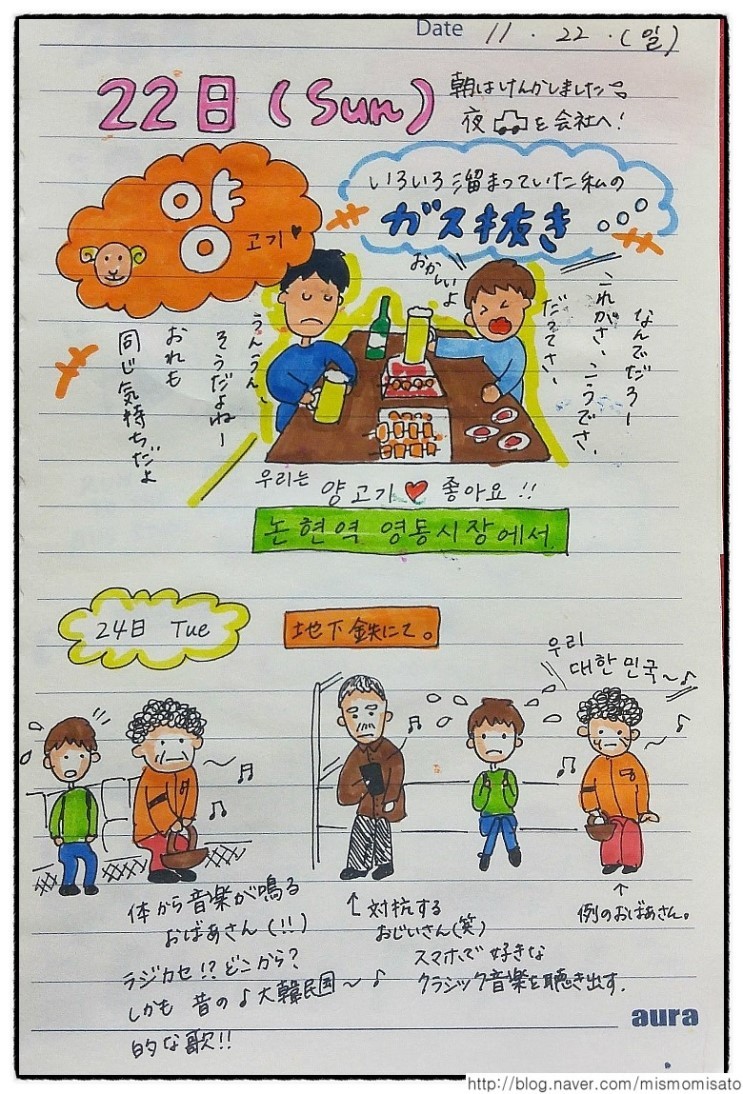 Date 11 . 22 . (일)
22日 (Sun)
朝はけんかしました
夜 を会社へ!
양
고기♥
いろいろ溜まっていた私の
ガス抜き
おかしいよ
なんでだろー
これがさ、こうでさ、
だってさ、
うんうん、
そうだよねー
おれも
同じ気持ちだよ
우리는
양고기 ♥ 좋아요 !!
논현역 영동시장에서
24日 Tue
地下鉄にて。
우리
대한민국~♪
体から音楽が鳴る
おばあさん(!!)
ラジカセ!? どこから?
しかも 昔の ♪ 大韓民国 ~ ♪
的な歌!!
↑ 対抗する
おじいさん(笑)
スマホで 好きな
クラシック音楽を聴き出す.
↑
例のおばあさん。
aura
http://blog.naver.com/mismomisato